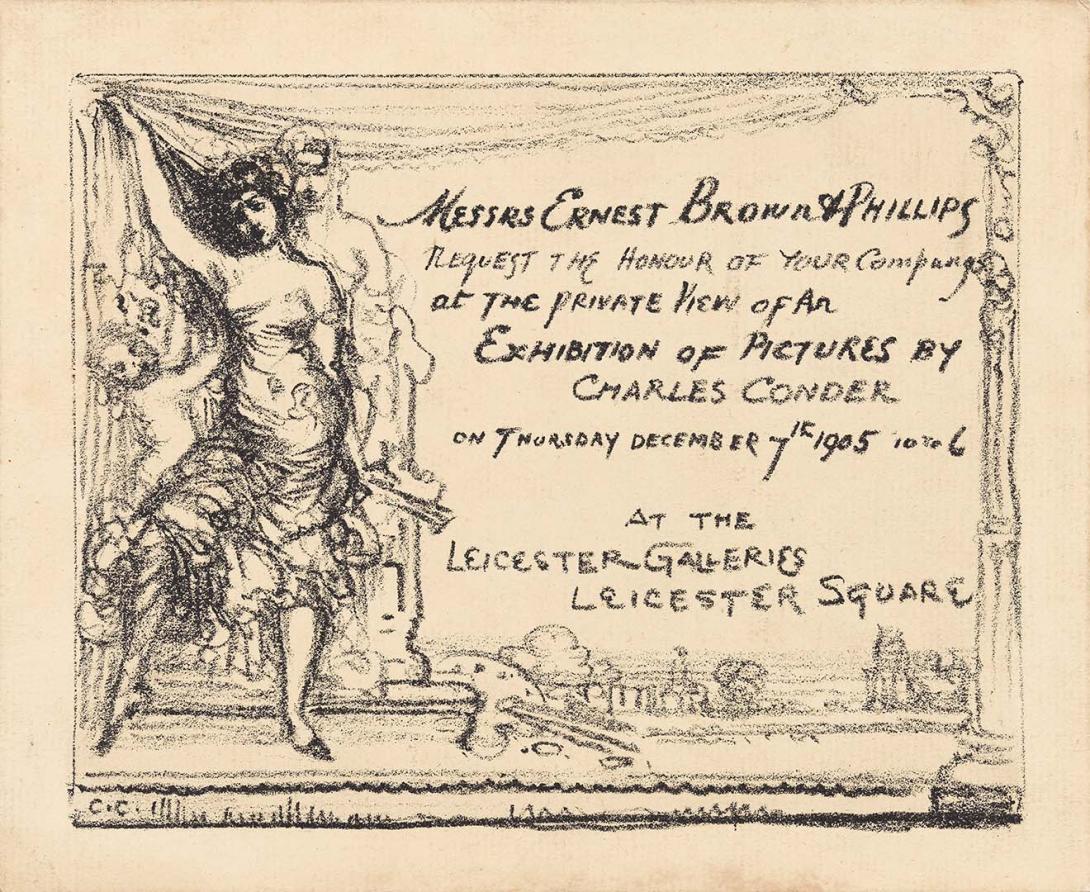 Messrs Ernest Brown & Phillips
Request the Honour of your Company
at the Private View of An
Exhibition of Pictures by
Charles Conder
on Thursday December 7th 1905 10 to 6
At the
Leicester Galleries
Leicester Square
C.C.